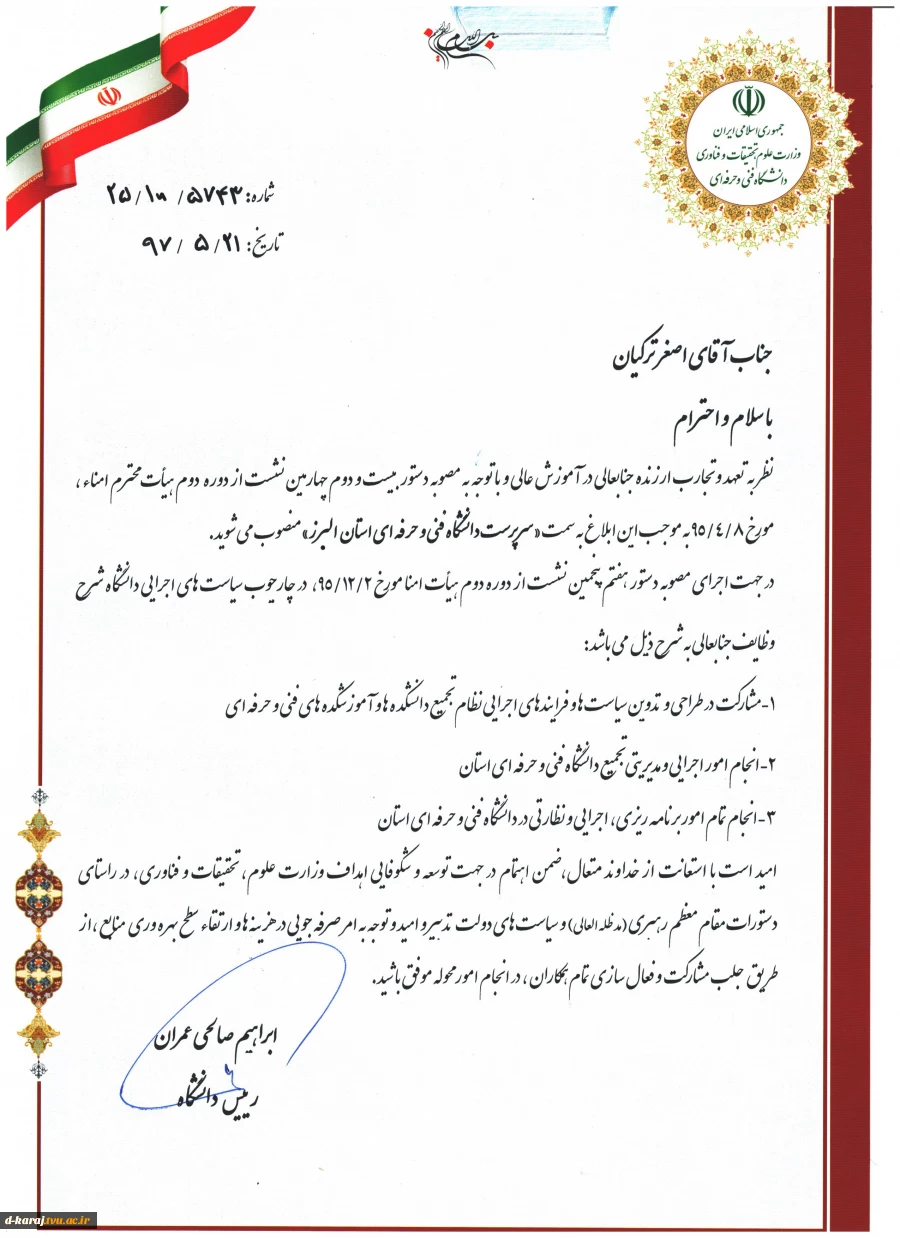 بسم الله الرحمن الرحیم
جمهوری اسلامی ایران
وزارت علوم، تحقیقات و فناوری
دانشگاه فنی و حرفه ای
شماره: ۲۵/۱۰۰/۵۷۴۳
تاریخ: ۹۷/۵/۲۱
جناب آقای اصغر ترکیان
با سلام و احترام
نظر به تعهد و تجارب ارزنده جنابعالی در آموزش عالی و با توجه به مصوبه دستور بیست و دوم چهارمین نشست از دوره دوم هیأت محترم امناء ،
مورخ ۹۵/٤/۸ به موجب این ابلاغ به سمت «سرپرست دانشگاه فنی و حرفه ای استان البرز» منصوب می شوید.
در جهت اجرای مصوبه دستور هفتم پنجمین نشست از دوره دوم هیأت امنا مورخ ۹۵/۱۲/۲، در چارچوب سیاست های اجرایی دانشگاه شرح
وظایف جنابعالی به شرح ذیل می باشد:
۱-مشارکت در طراحی و تدوین سیاست ها و فرایندهای اجرایی نظام تجمیع دانشکده ها و آموزشکده های فنی و حرفه ای
۲-انجام امور اجرایی و مدیریتی تجمیع دانشگاه فنی و حرفه ای استان
۳-انجام تمام امور برنامه ریزی، اجرایی و نظارتی در دانشگاه فنی و حرفه ای استان
امید است با استعانت از خداوند متعال، ضمن اهتمام در جهت توسعه و شکوفایی اهداف وزارت علوم، تحقیقات و فناوری، در راستای
دستورات مقام معظم رهبری (مدظله العالی) و سیاست های دولت تدبیر و امید و توجه به امر صرفه جویی در هزینه ها و ارتقاء سطح بهره وری منابع ، از
طریق جلب مشارکت و فعال سازی تمام همکاران ، در انجام امور محوله موفق باشید.
ابراهیم صالحی عمران
رییس دانشگاه
d-karaj.tvu.ac.ir